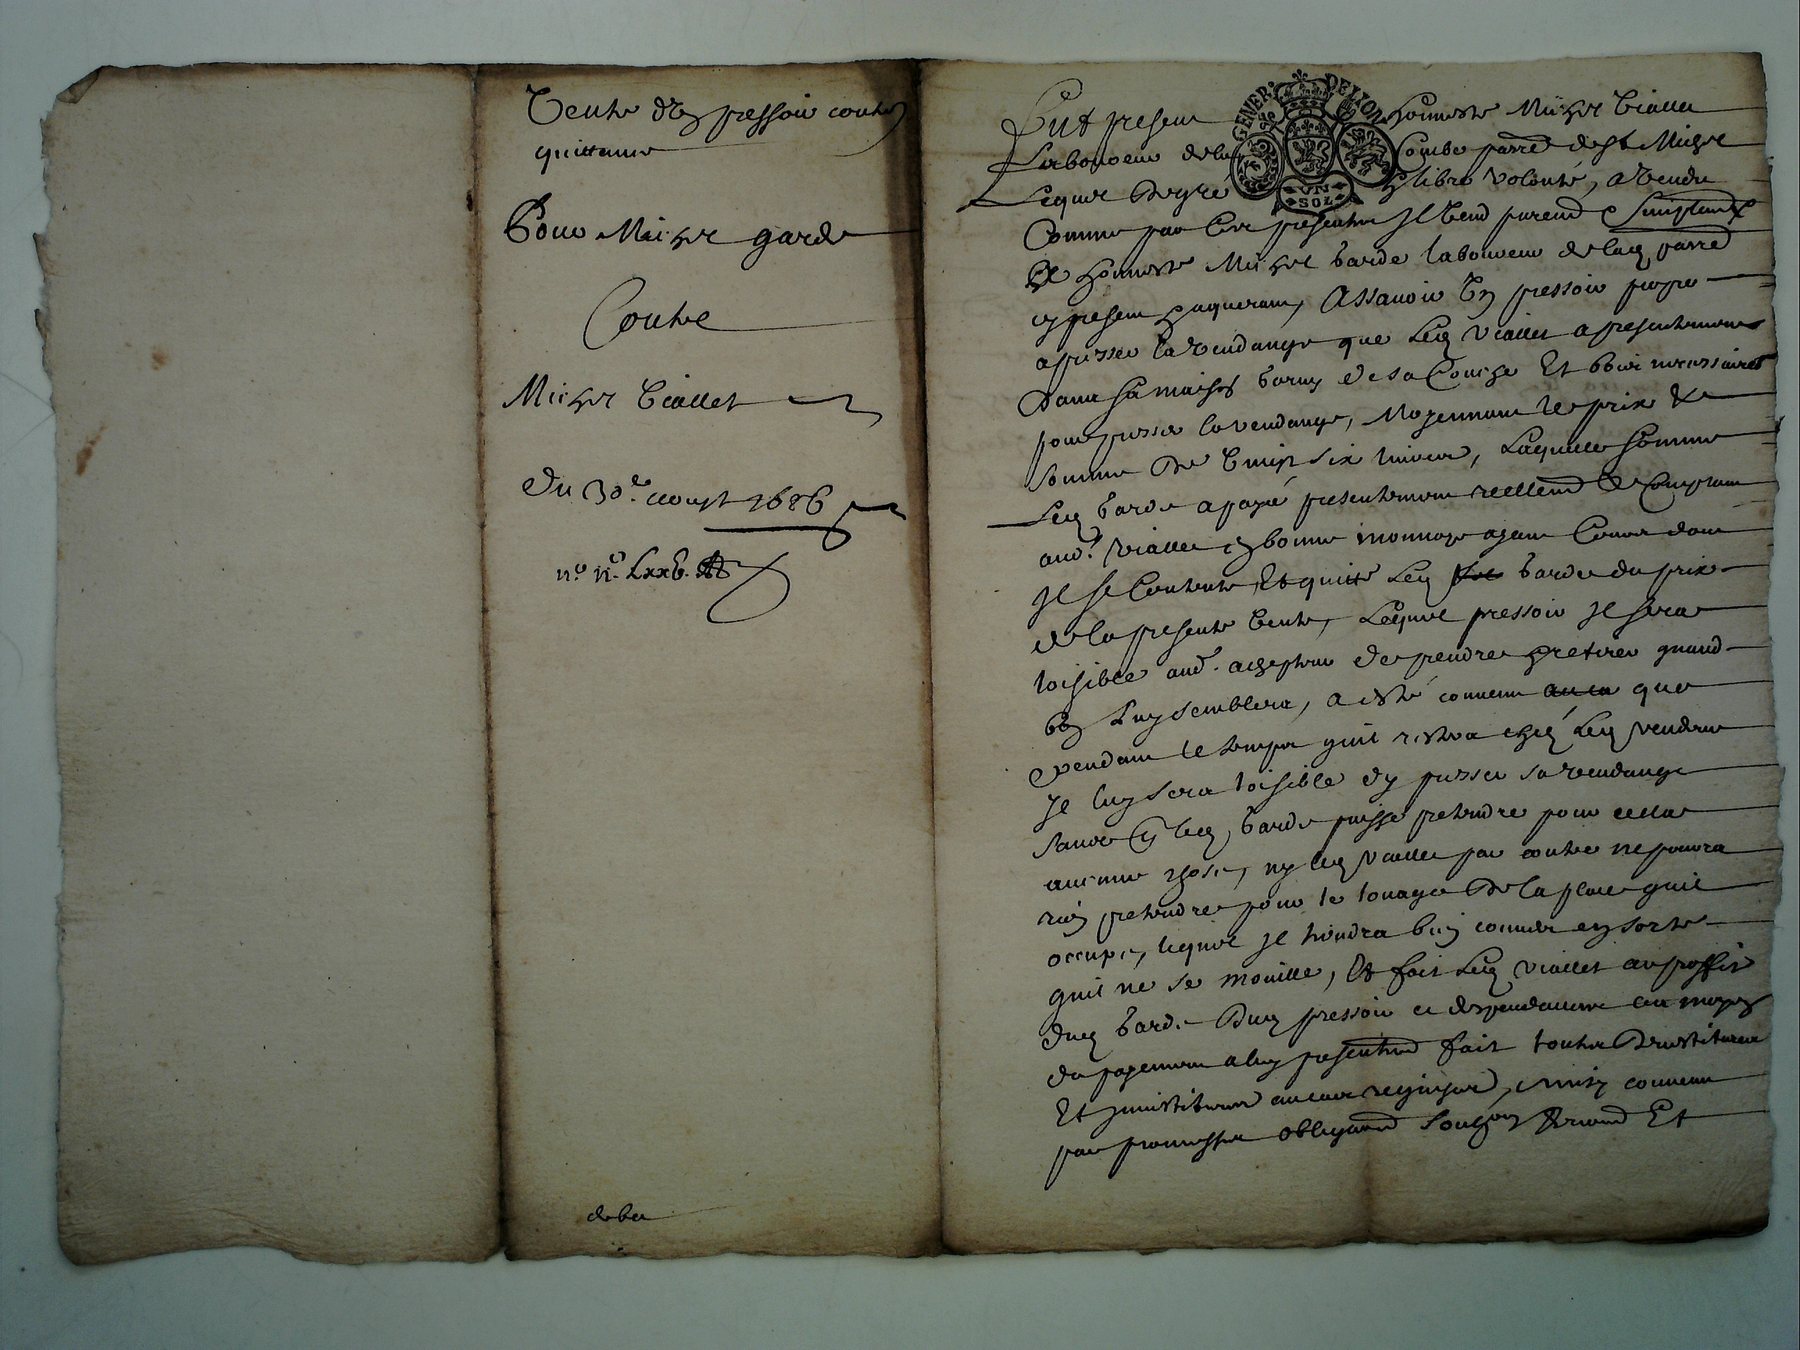 Vente d'un pressoir contenant
quittance
Pour Michel garde
Contre
Michel Viallet
Du 30e aoust 1686
n.o n.o Lxxv.
GENER DE LYON
VN
SOL
Fut present honneste Michel Viallet
Laboureur de la Combe parre de st Michel
Lequel de gre & libre volonté, a vendu
Comme par les presentes Il vend purement & simplement
A honneste Michel barde laboureur de lad parre
cy present & aquerant, Assavoir un pressoir propre
a presser la vendange que led viallet a presentement
dans sa maison garny de sa Conche Et bois necessaires
pour presser la vendange, Moyennant le prix &
somme de vingt six livres, Laquelle somme
Led barde a payé presentement reellement & Comptant
aud. viallet en bonne monnoye ayant Cours dont
Il se Contente, Et quitte Led barde du prix
de la presente vente, Lequel pressoir Il sera
loisible aud. achepteur de prendre & retirer quand
bon luy semblera, a esté convenu que
pendant le temps quil restera chez Led vendeur
Il luy sera loisible dy presser sa vendange
sans que led barde puisse pretendre pour cella
aucune chose, ny led viallet par contre ne pourra
rien pretendre pour le louage de la place quil
occupe, lequel Il tiendra bien couvert en sorte
quil ne se mouille, Et fait Led viallet au proffit
dud barde dud pressoir et dependances au moyen
du payement a luy presentement fait toutes Devestitures
Et Investitures au cas requises, ainsy convenu
par promesses obligations serment Et